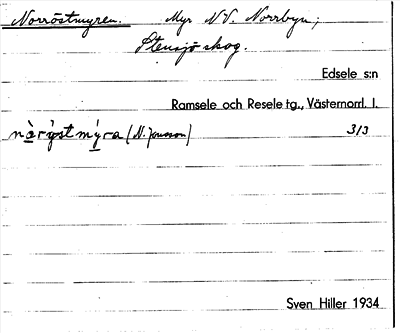 Norröstmyren. Myr NV. Norrbyn;
Stensjö skog.
Edsele s:n
Ramsele och Resele tg., Västernorrl. l.
(N. Jonsson) 3/3
Sven Hiller 1934